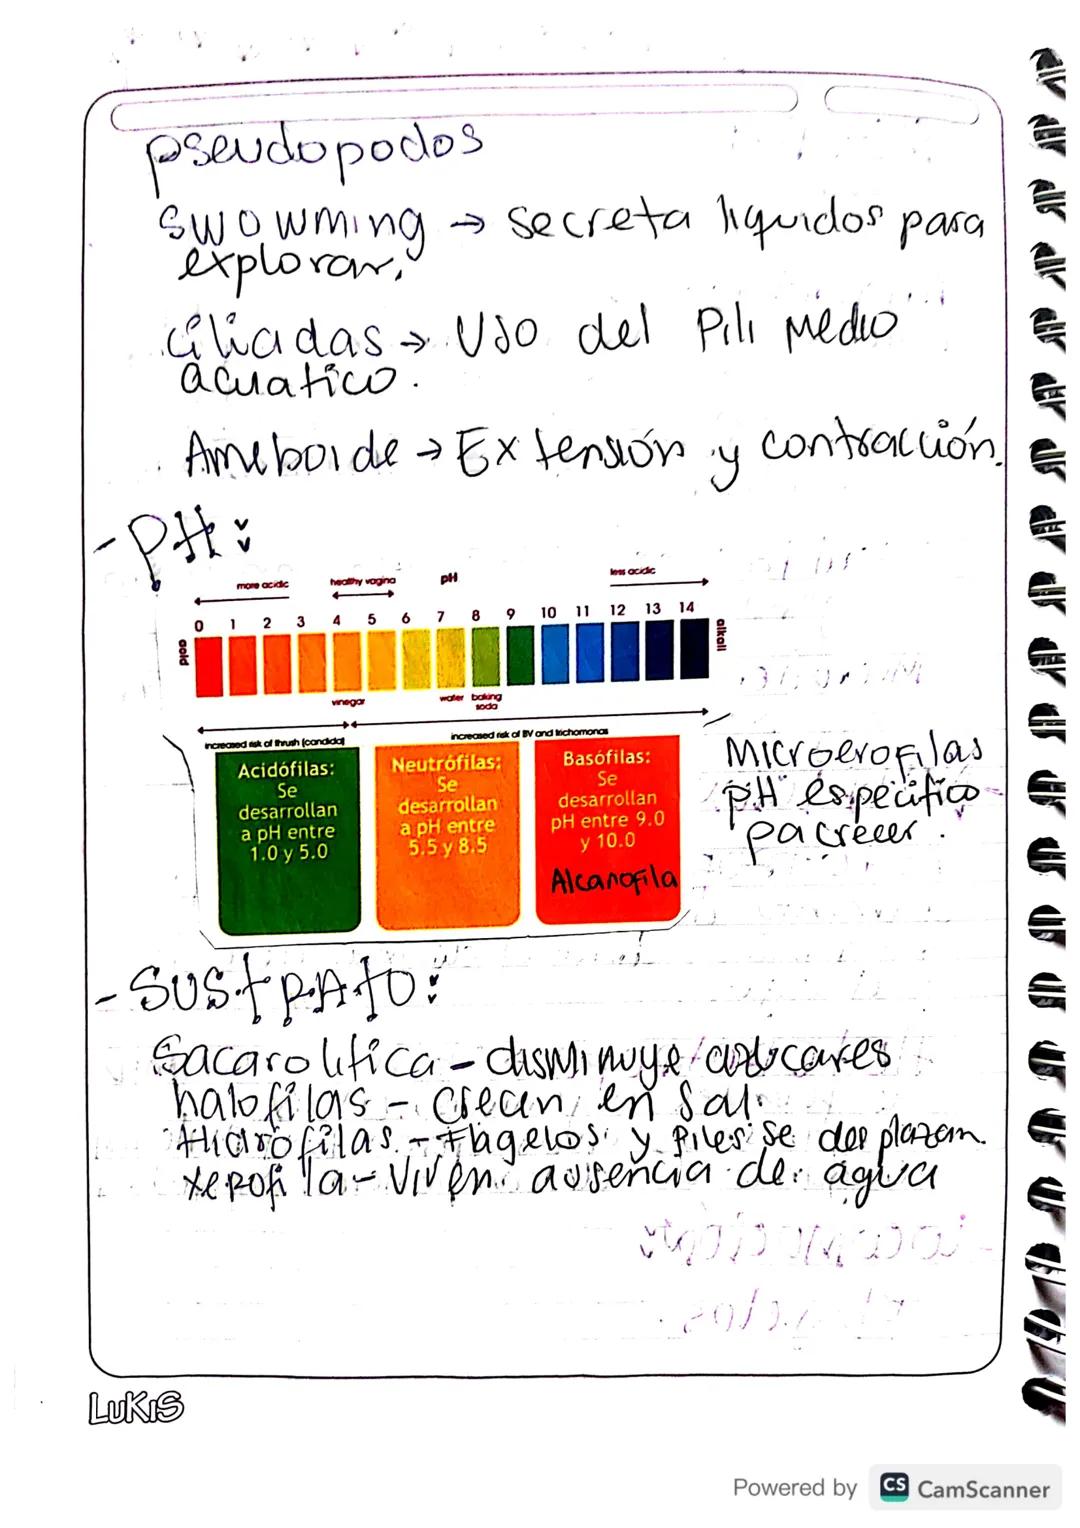 pseudopodos
swowming → secreta liquidos para
explorar.
Ciliadas → Uso del Pili Medio
acuatico.
Ameboide → Extensión y contracción.
- PH:
more acidic
healthy vagina
pH
less acidic
0 1 2 3 4 5 6 7 8 9 10 11 12 13 14
acid
alkali
vinegar
water
baking
soda
increased risk of thrush (candida)
increased risk of BV and trichomonas
Acidófilas:
Se
desarrollan
a pH entre
1.0 y 5.0
Neutrófilas:
Se
desarrollan
a pH entre
5.5 y 8.5
Basófilas:
Se
desarrollan
pH entre 9.0
y 10.0
Alcanofila
Microerofilas
pH especifico
pa crecer.
- SUSTRATO:
Sacarolitica - disminuye azucares
halofilas - crecen en sal.
Hidrofilas - Flagelos y Piles se desplazan.
xerofila - Viven ausencia de agua
LUKIS
Powered by CS CamScanner